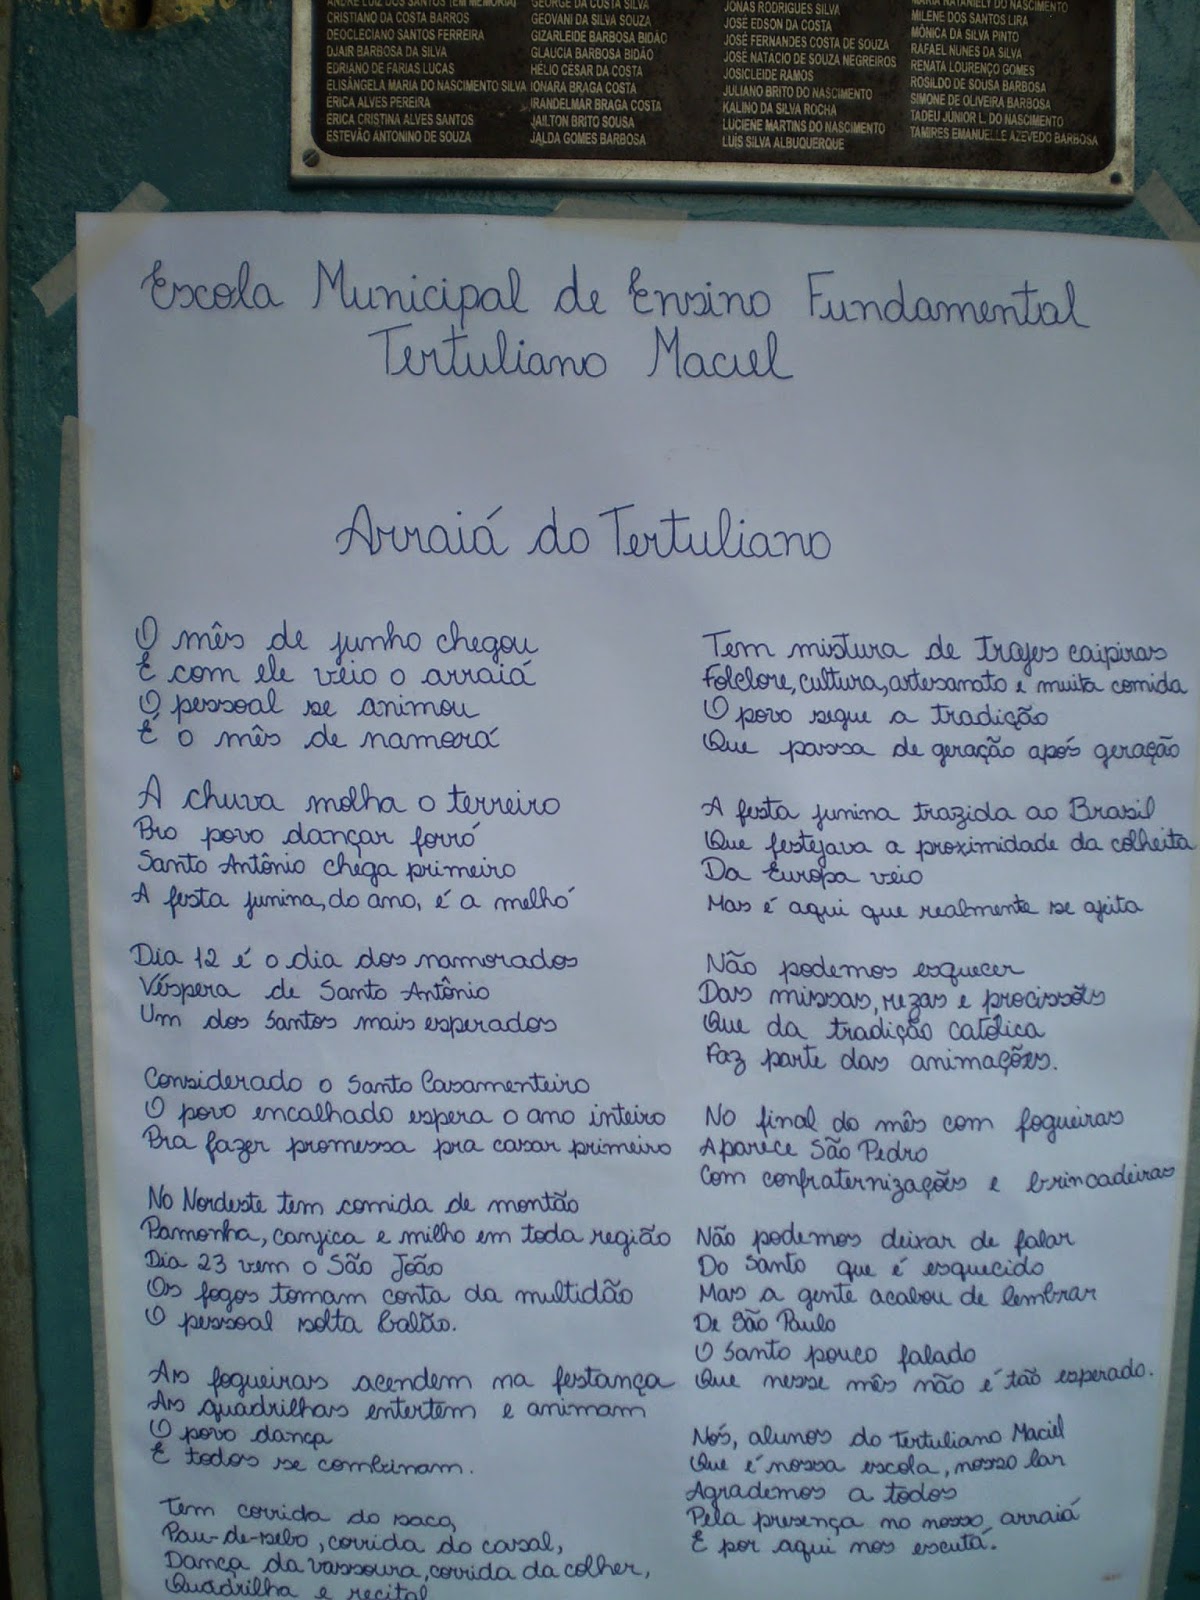 ANDRÉ LUIZ DOS SANTOS (EM MEMÓRIA)
CRISTIANO DA COSTA BARROS
DEOCLECIANO SANTOS FERREIRA
DJAIR BARBOSA DA SILVA
EDRIANO DE FARIAS LUCAS
ELISÂNGELA MARIA DO NASCIMENTO SILVA
ÉRICA ALVES PEREIRA
ERICA CRISTINA ALVES SANTOS
ESTEVÃO ANTONINO DE SOUZA
GEORGE DA COSTA SILVA
GEOVANI DA SILVA SOUZA
GIZARLEIDE BARBOSA BIDÃO
GLAUCIA BARBOSA BIDÃO
HELIO CESAR DA COSTA
IONARA BRAGA COSTA
IRANDELMAR BRAGA COSTA
JAILTON BRITO SOUSA
JALDA GOMES BARBOSA
JONAS RODRIGUES SILVA
JOSÉ EDSON DA COSTA
JOSÉ FERNANDES COSTA DE SOUZA
JOSÉ NATACIO DE SOUZA NEGREIROS
JOSICLEIDE RAMOS
JULIANO BRITO DO NASCIMENTO
KALINO DA SILVA ROCHA
LUCIENE MARTINS DO NASCIMENTO
LUÍS SILVA ALBUQUERQUE
MARIA NATANIELY DO NASCIMENTO
MILENE DOS SANTOS LIRA
MÔNICA DA SILVA PINTO
RAFAEL NUNES DA SILVA
RENATA LOURENÇO GOMES
ROSILDO DE SOUSA BARBOSA
SIMONE DE OLIVEIRA BARBOSA
TADEU JÚNIOR L. DO NASCIMENTO
TAMIRES EMANUELLE AZEVEDO BARBOSA
Escola Municipal de Ensino Fundamental
Tertuliano Maciel
Arraiá do Tertuliano
O mês de junho chegou
E com ele veio o arraiá
O pessoal se animou
É o mês de namorá
A chuva molha o terreiro
Pro povo dançar forró
Santo Antônio chega primeiro
A festa junina, do ano, é a melhó
Dia 12 é o dia dos namorados
Véspera de Santo Antônio
Um dos Santos mais esperados
Considerado o Santo Casamenteiro
O povo encalhado espera o ano inteiro
Pra fazer promessa pra casar primeiro
No Nordeste tem comida de montão
Pamonha, canjica e milho em toda região
Dia 23 vem o São João
Os fogos tomam conta da multidão
O pessoal solta balão.
As fogueiras acendem na festança
As quadrilhas entertem e animam
O povo dança
E todos se combinam.
Tem corrida do saco,
Pau-de-sebo, corrida do casal,
Dança da vassoura, corrida da colher,
Quadrilha e recital
Tem mistura de trajes caipiras
Folclore, cultura, artesanato e muita comida
O povo segue a tradição
Que passa de geração após geração
A festa junina trazida ao Brasil
Que festejava a proximidade da colheita
Da Europa veio
Mas é aqui que realmente se ajeita
Não podemos esquecer
Das missas, rezas e procissões
Que da tradição católica
Faz parte das animações.
No final do mês com fogueiras
Aparece São Pedro
Com confraternizações e brincadeiras
Não podemos deixar de falar
Do Santo que é esquecido
Mas a gente acabou de lembrar
De São Paulo
O Santo pouco falado
Que nesse mês não é tão esperado.
Nós, alunos do Tertuliano Maciel
Que é nossa escola, nosso lar
Agrademos a todos
Pela presença no nosso arraiá
E por aqui nos escutá.